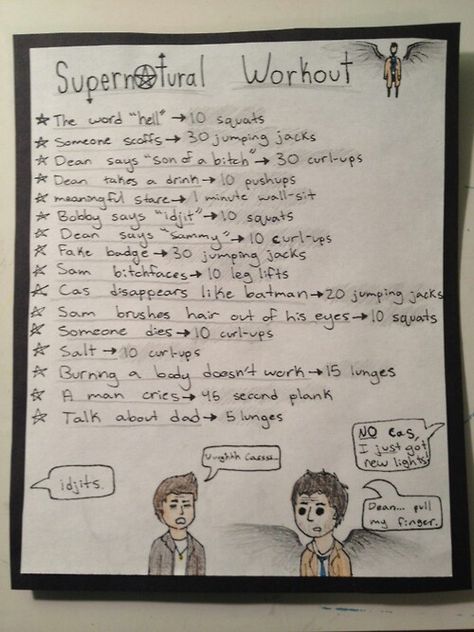 Supernatural Workout
The word "hell" → 10 squats
Someone scoffs → 30 jumping jacks
Dean says "son of a bitch" → 30 curl-ups
Dean takes a drink → 10 pushups
meaningful stare → 1 minute wall-sit
Bobby says "idjit" → 10 squats
Dean says "Sammy" → 10 curl-ups
Fake badge → 30 jumping jacks
Sam bitchfaces → 10 leg lifts
Cas disappears like batman → 20 jumping jacks
Sam brushes hair out of his eyes → 10 squats
Someone dies → 10 curl-ups
Salt → 10 curl-ups
Burning a body doesn't work → 15 lunges
A man cries → 45 second plank
Talk about dad → 5 lunges
NO cas,
I just got
new lights!
Uughhh Cassss...
idjits.
Dean... pull
my finger.